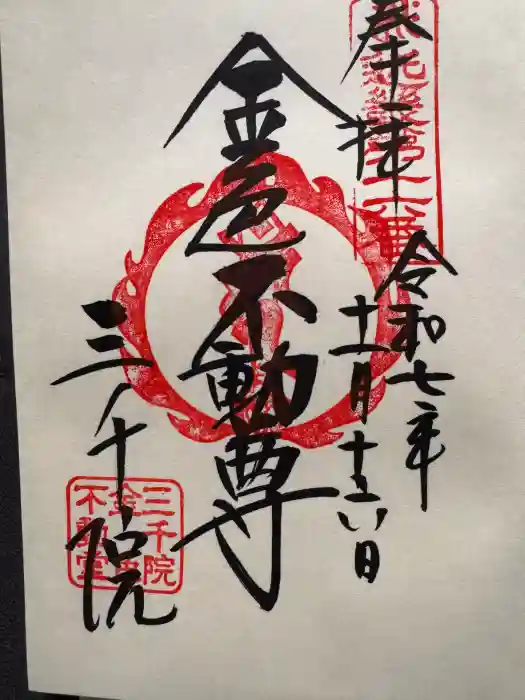 奉拝
令和七年
十一月十五日
金色不動尊
三千院
三千院
金色
不動堂